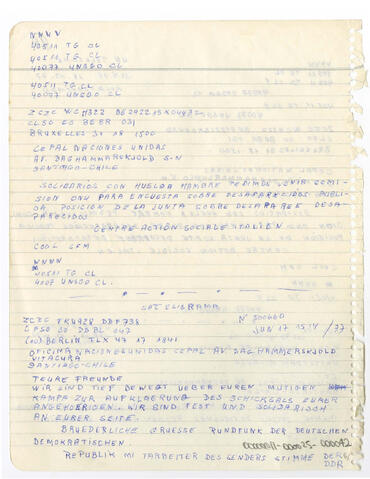 NNNN
40511 TG CL
40511 TG CL
40077 UNSGO CL
40511 TG CL
40077 UNSGO CL
BRUXELLES 30 28 1500
CEPAL NACIONES UNIDAS
AV. DAGHAMMARSKJOLD S-N
SANTIAGO-CHILE
SOLIDARIOS CON HUELGA HAMBRE PEDIMOS VENIR COMI-
SION ONU PARA ENCUESTA SOBRE DESAPARECIDOS PUBLI-
DA POSICION DE LA JUNTA SOBRE DESAPAREE DESA-
PARECIDOS
CENTRE ACTION SOCIALE ITALIEN
COL- SFM
NNNN
40511 TG CL
40077 UNSGO CL.
SATELIGRAMA
ZCZC FRU928 DBF738
N° 300660
JUN 17 /77
BERLIN TLX 47 17 1841
OFICINA NACIONES UNIDAS CEPAL AV. DAGHAMMERSKJOLD
VITACURA
SANTIAGO-CHILE
TEURE FREUNDE
WIR SIND TIEF BEWEGT UEBER EUREN MUTIGEN
KAMPF ZUR AUFKLAERUNG DES SCHICKSALS EURER
ANGEHOERIGEN. WIR SIND FEST UND SOLIDARISCH
AN EURER SEITE.
BRUEDERLICHE GRUESSE RUNDFUNK DER DEUTSCHEN
DEMOKRATISCHEN.
000011-000025-000042
REPUBLIK MITARBEITER DES SENDERS STIMME DER
DDR